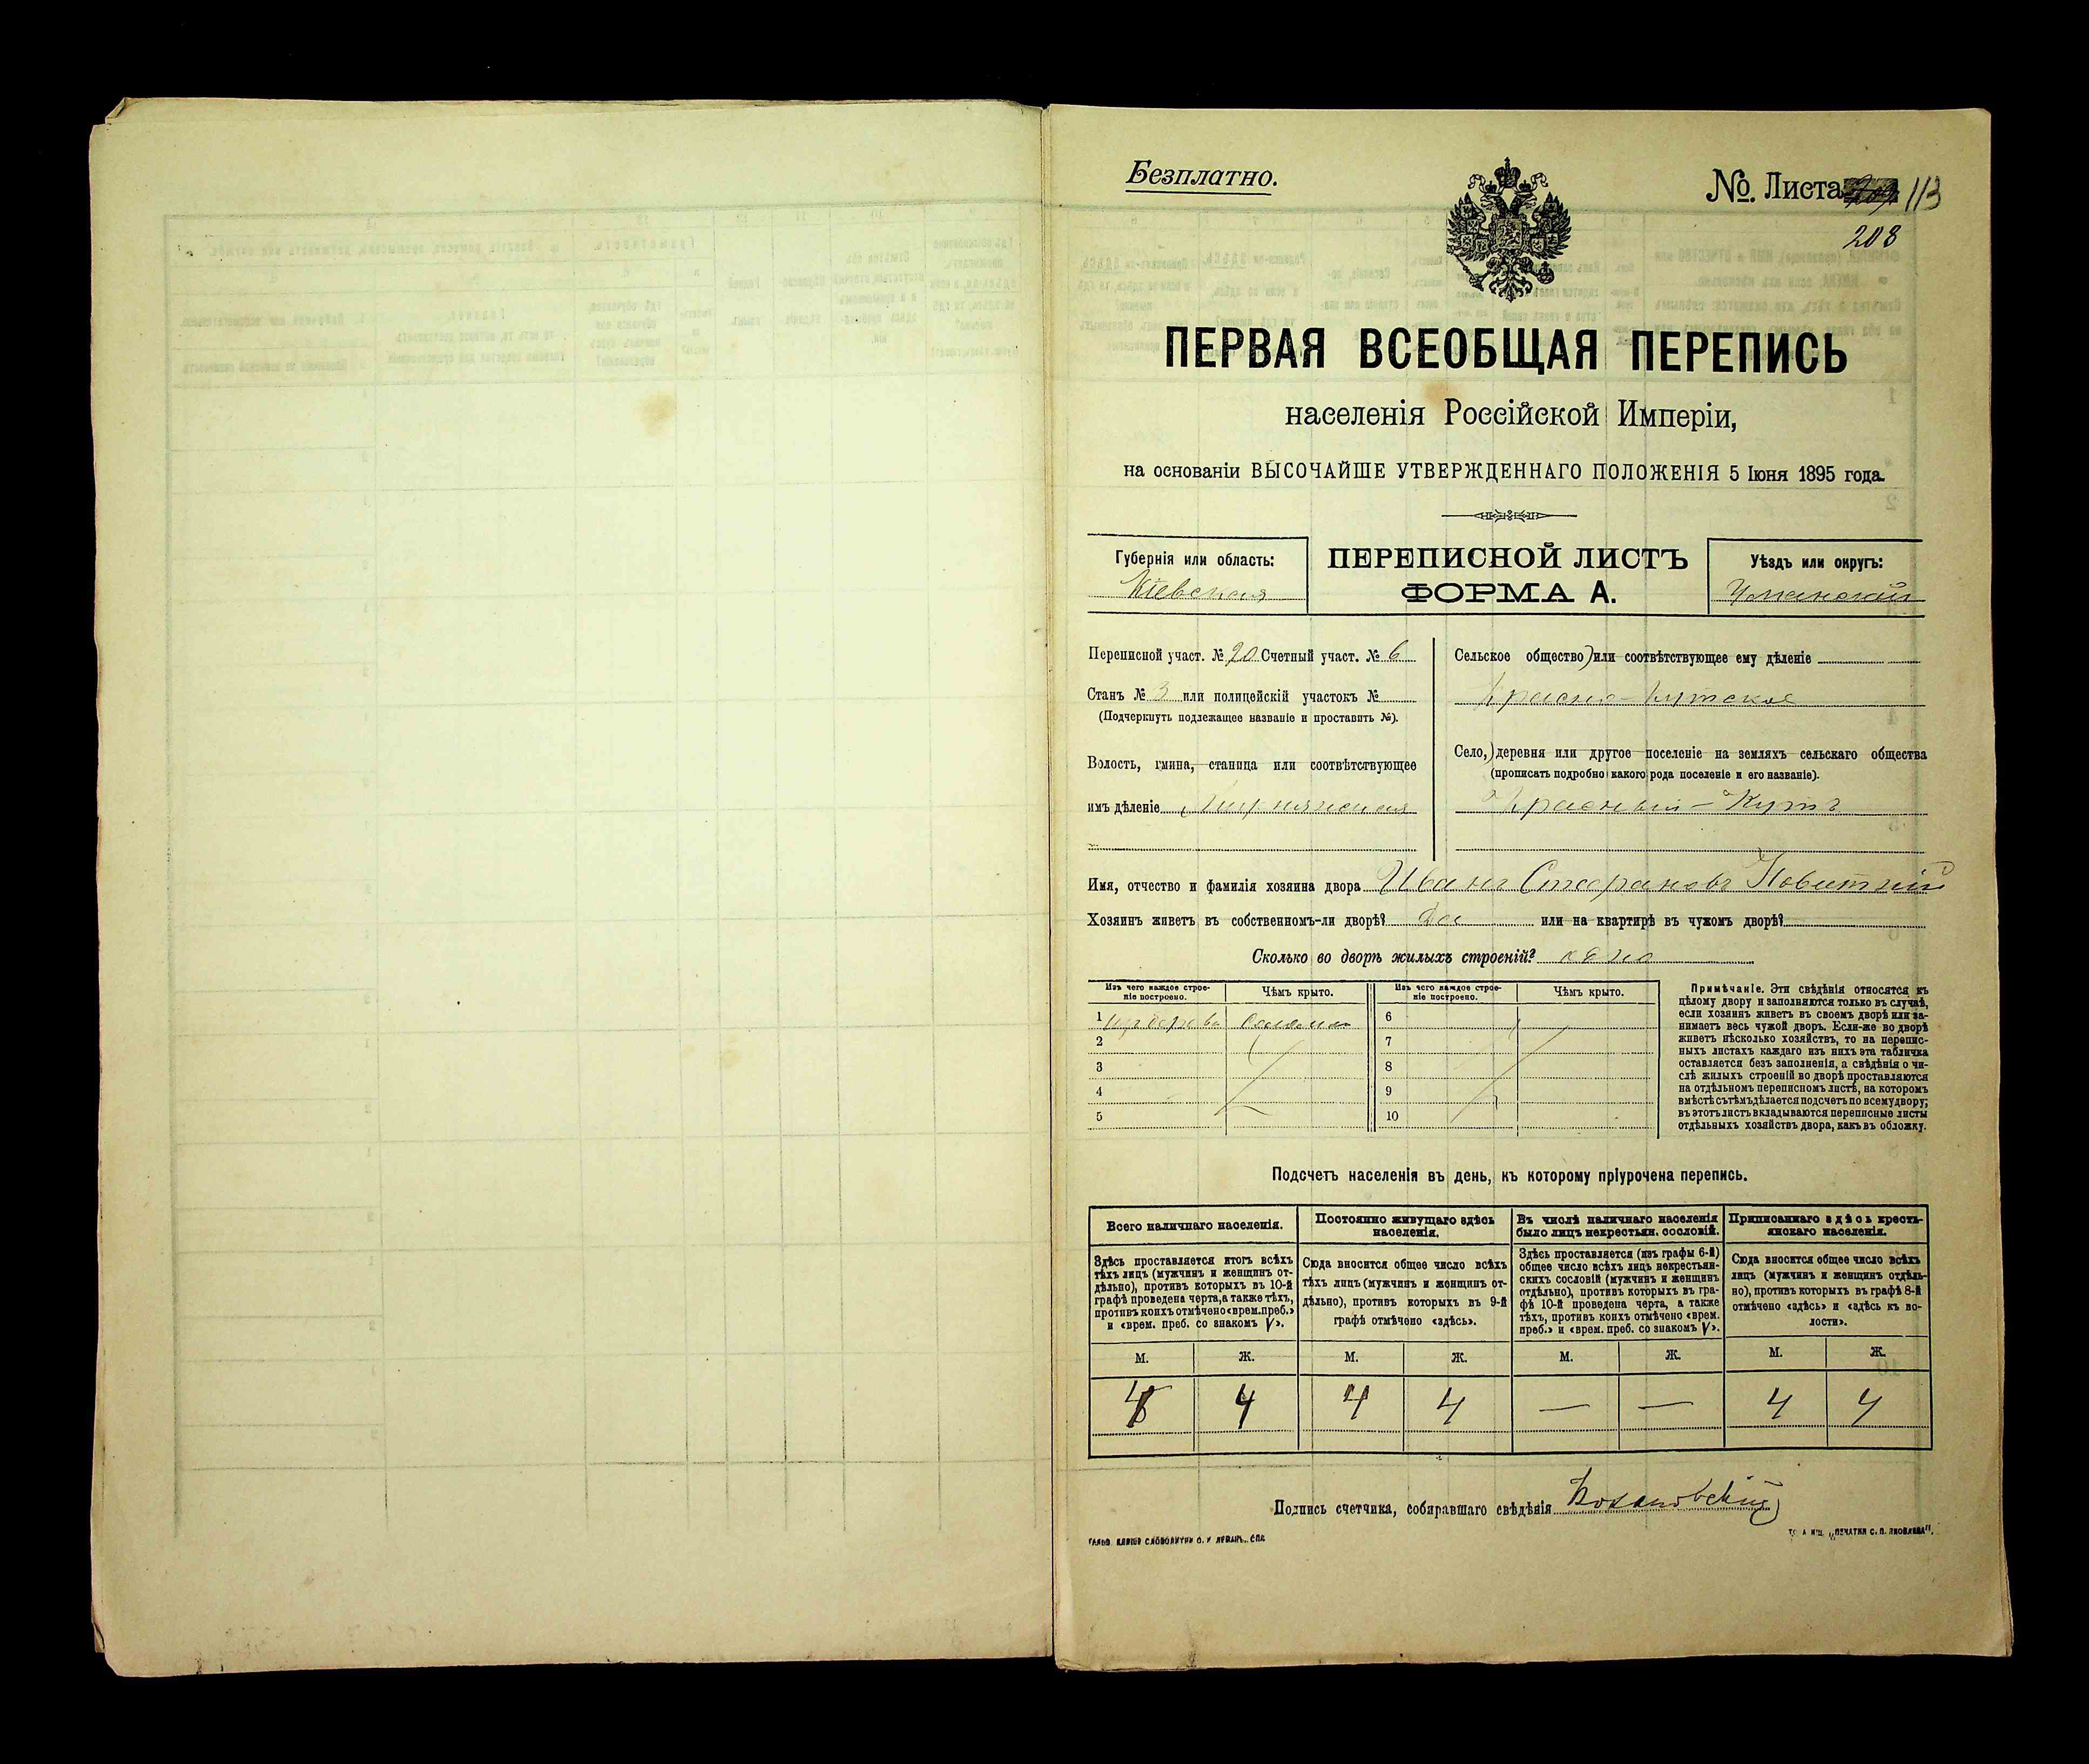 Безплатно.
№. Листа 113
208
ПЕРВАЯ ВСЕОБЩАЯ ПЕРЕПИСЬ
населенія Россійской Имперіи,
на основаніи ВЫСОЧАЙШЕ УТВЕРЖДЕННАГО ПОЛОЖЕНІЯ 5 Іюня 1895 года.
Губернія или область:
Кіевская
ПЕРЕПИСНОЙ ЛИСТЪ
ФОРМА А.
Уѣздъ или округъ:
Уманскій
Переписной участ. № 20 Счетный участ. № 6
Станъ № 3 или полицейскій участокъ №
(Подчеркнуть подлежащее названіе и проставить №).
Волость, гмина, станица или соотвѣтствующее
имъ дѣленіе
Сельское общество) или соотвѣтствующее ему дѣленіе
Красно-Кутское
Село,) деревня или другое поселеніе на земляхъ сельскаго общества
(прописать подробно какого рода поселеніе и его названіе).
Красный-Кутъ
Имя, отчество и фамилія хозяина двора Иванъ Стефановъ
Хозяинъ живетъ въ собственномъ-ли дворѣ? Да или на квартирѣ въ чужомъ дворѣ?
Сколько во дворѣ жилыхъ строеній? одно
Изъ чего каждое строе-
ніе построено.
Чѣмъ крыто.
Изъ чего каждое строе-
ніе построено.
Чѣмъ крыто.
1 изъ дерева соломой
2
3
4
5
6
7
8
9
10
Примѣчаніе. Эти свѣдѣнія относятся къ
цѣлому двору и заполняются только въ случаѣ,
если хозяинъ живетъ въ своемъ дворѣ или за-
нимаетъ весь чужой дворъ. Если-же во дворѣ
живетъ нѣсколько хозяйствъ, то на перепис-
ныхъ листахъ каждаго изъ нихъ эта табличка
оставляется безъ заполненія, а свѣдѣнія о чи-
слѣ жилыхъ строеній во дворѣ проставляются
на отдѣльномъ переписномъ листѣ, на которомъ
вмѣстѣ съ тѣмъ дѣлается подсчетъ по всему двору;
въ этотъ листъ вкладываются переписные листы
отдѣльныхъ хозяйствъ двора, какъ въ обложку.
Подсчетъ населенія въ день, къ которому пріурочена перепись.
Всего наличнаго населенія.
Здѣсь проставляется итогъ всѣхъ
тѣхъ лицъ (мужчинъ и женщинъ от-
дѣльно), противъ которыхъ въ 10-й
графѣ проведена черта, а также тѣхъ,
противъ коихъ отмѣчено «врем. преб.»
и «врем. преб. со знакомъ V».
Постоянно живущаго здѣсь
населенія.
Сюда вносится общее число всѣхъ
тѣхъ лицъ (мужчинъ и женщинъ от-
дѣльно), противъ которыхъ въ 9-й
графѣ отмѣчено «здѣсь».
Въ числѣ наличнаго населенія
было лицъ некрестьян. сословій.
Здѣсь проставляется (изъ графы 6-й)
общее число всѣхъ лицъ некрестьян-
скихъ сословій (мужчинъ и женщинъ
отдѣльно), противъ которыхъ въ гра-
фѣ 10-й проведена черта, а также
тѣхъ, противъ коихъ отмѣчено «врем.
преб.» и «врем. преб. со знакомъ V».
Приписаннаго здѣсь кресть-
янскаго населенія.
Сюда вносится общее число всѣхъ
лицъ (мужчинъ и женщинъ отдѣль-
но), противъ которыхъ въ графѣ 8-й
отмѣчено «здѣсь» и «здѣсь къ во-
лости».
М. Ж. М. Ж. М. Ж. М. Ж.
4 4 4 4 — — 4 4
Подпись счетчика, собиравшаго свѣдѣнія